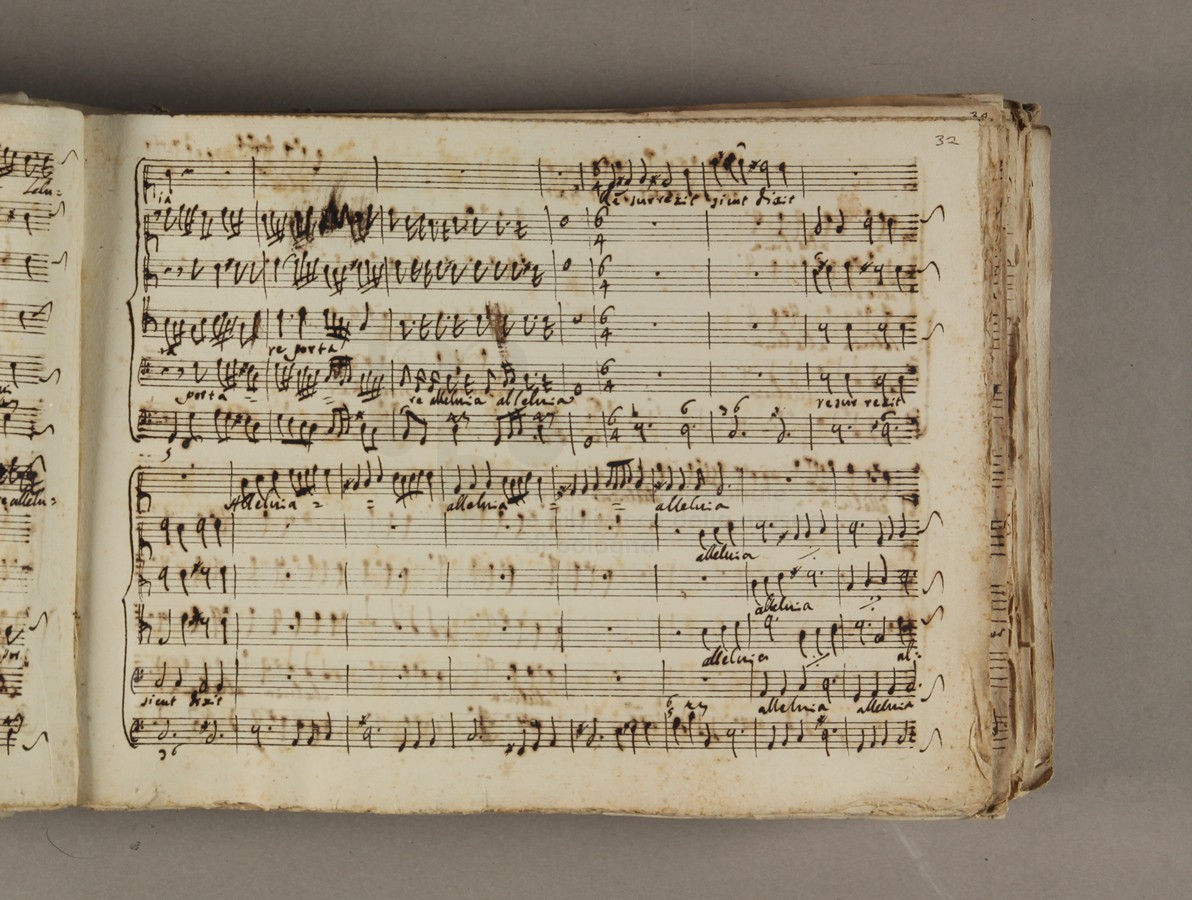 32
ia
Resurrexit sicut dixit
re porta
porta
re alleluia alleluia
resurrexit
Alleluia = = alleluia = alleluia
alleluia
alleluia
alleluia al-
sicut dixit
alleluia alleluia